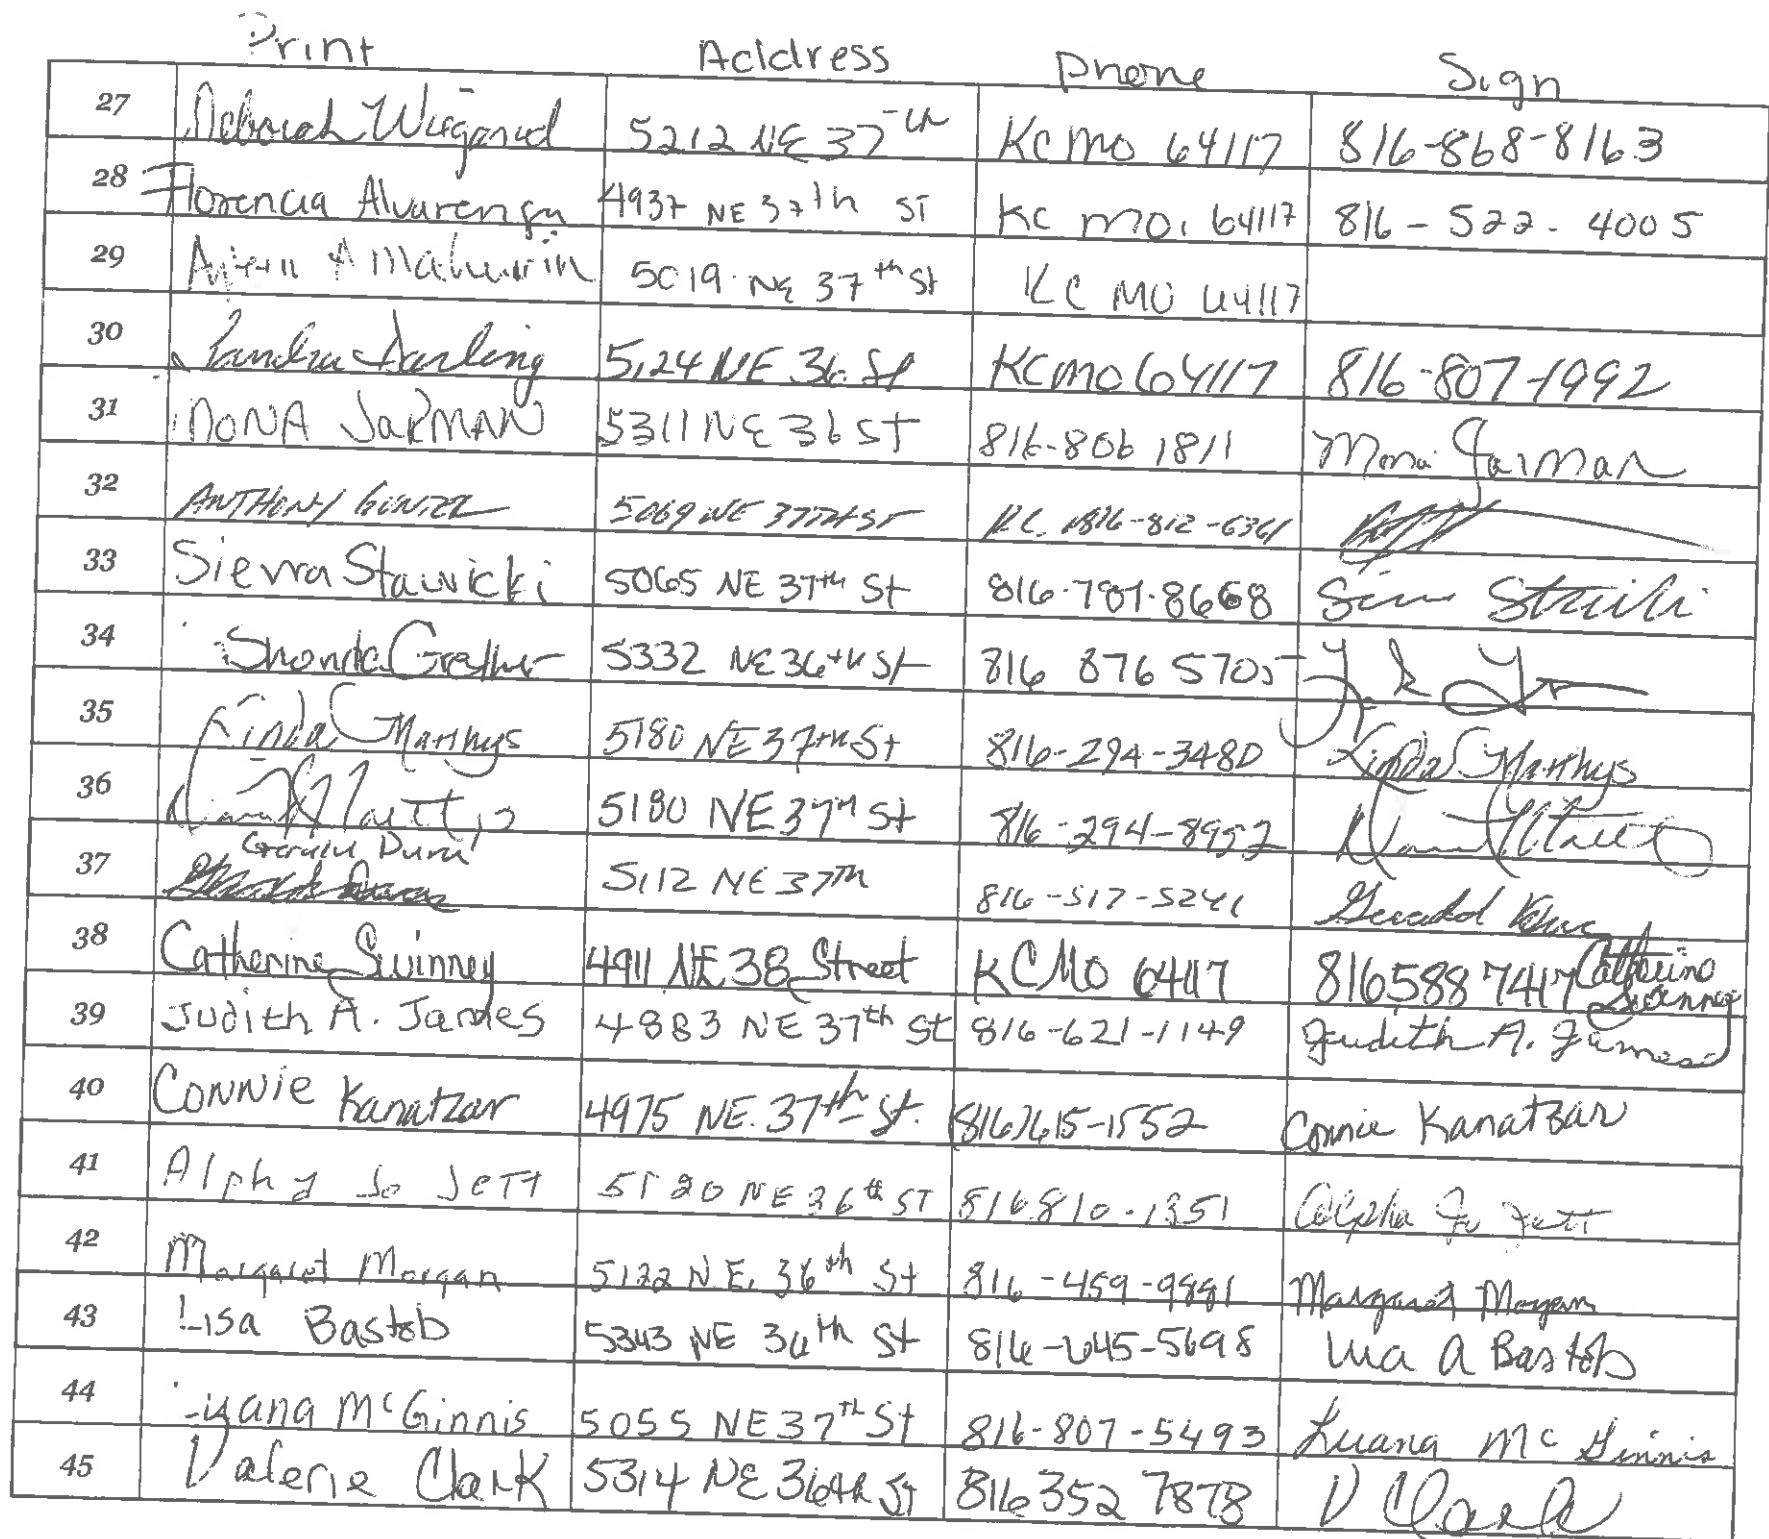 Print Address Phone Sign
27 Deborah Wiegand 5212 NE 37th KCMO 64117 816-868-8163
28 Florencia Alvarenga 4937 NE 37th ST KC MO. 64117 816-522-4005
29 A Mathurin 5019 NE 37th St KC MO 64117
30 Sandra Darling 5124 NE 36 St KCMO 64117 816-807-1992
31 MONA JARMAN 5311 NE 36 St 816-806 1811 Mona Jarman
32 ANTHONY 5069 NE 37TH ST K.C. 816-812-6361
33 Sierra Stawicki 5065 NE 37th St 816-787-8668
34 Shonda 5332 NE 36th St 816 876 5705
35 Linda Matthys 5180 NE 37th St 816-294-3480 Linda Matthys
36 5180 NE 37th St 816-294-8952
37 Gerald 5112 NE 37th 816-517-5241 Gerald
38 Catherine Swinney 4911 NE 38 Street KCMO 64117 8165887417 Catherine Swinney
39 Judith A. James 4883 NE 37th St 816-621-1149 Judith A. James
40 Connie Kanatzar 4975 NE. 37th St. (816)615-1552 Connie Kanatzar
41 Alpha Jo Jett 5120 NE 36th ST 816 810-1351 Alpha Jo Jett
42 Margaret Morgan 5122 N.E. 36th St 816-459-9881 Margaret Morgan
43 Lisa Bastob 5343 NE 36th St 816-645-5698 Lisa A Bastob
44 Luana McGinnis 5055 NE 37th St 816-807-5493 Luana McGinnis
45 Valerie Clark 5314 NE 36th ST 816 352 7878 V Clark